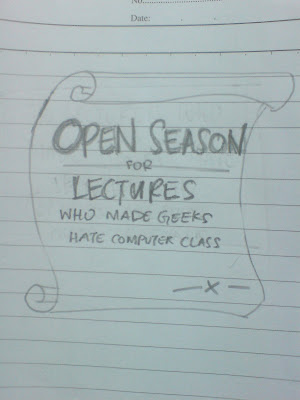 No:
Date:
OPEN SEASON
FOR
LECTURES
WHO MADE GEEKS
HATE COMPUTER CLASS
— x —